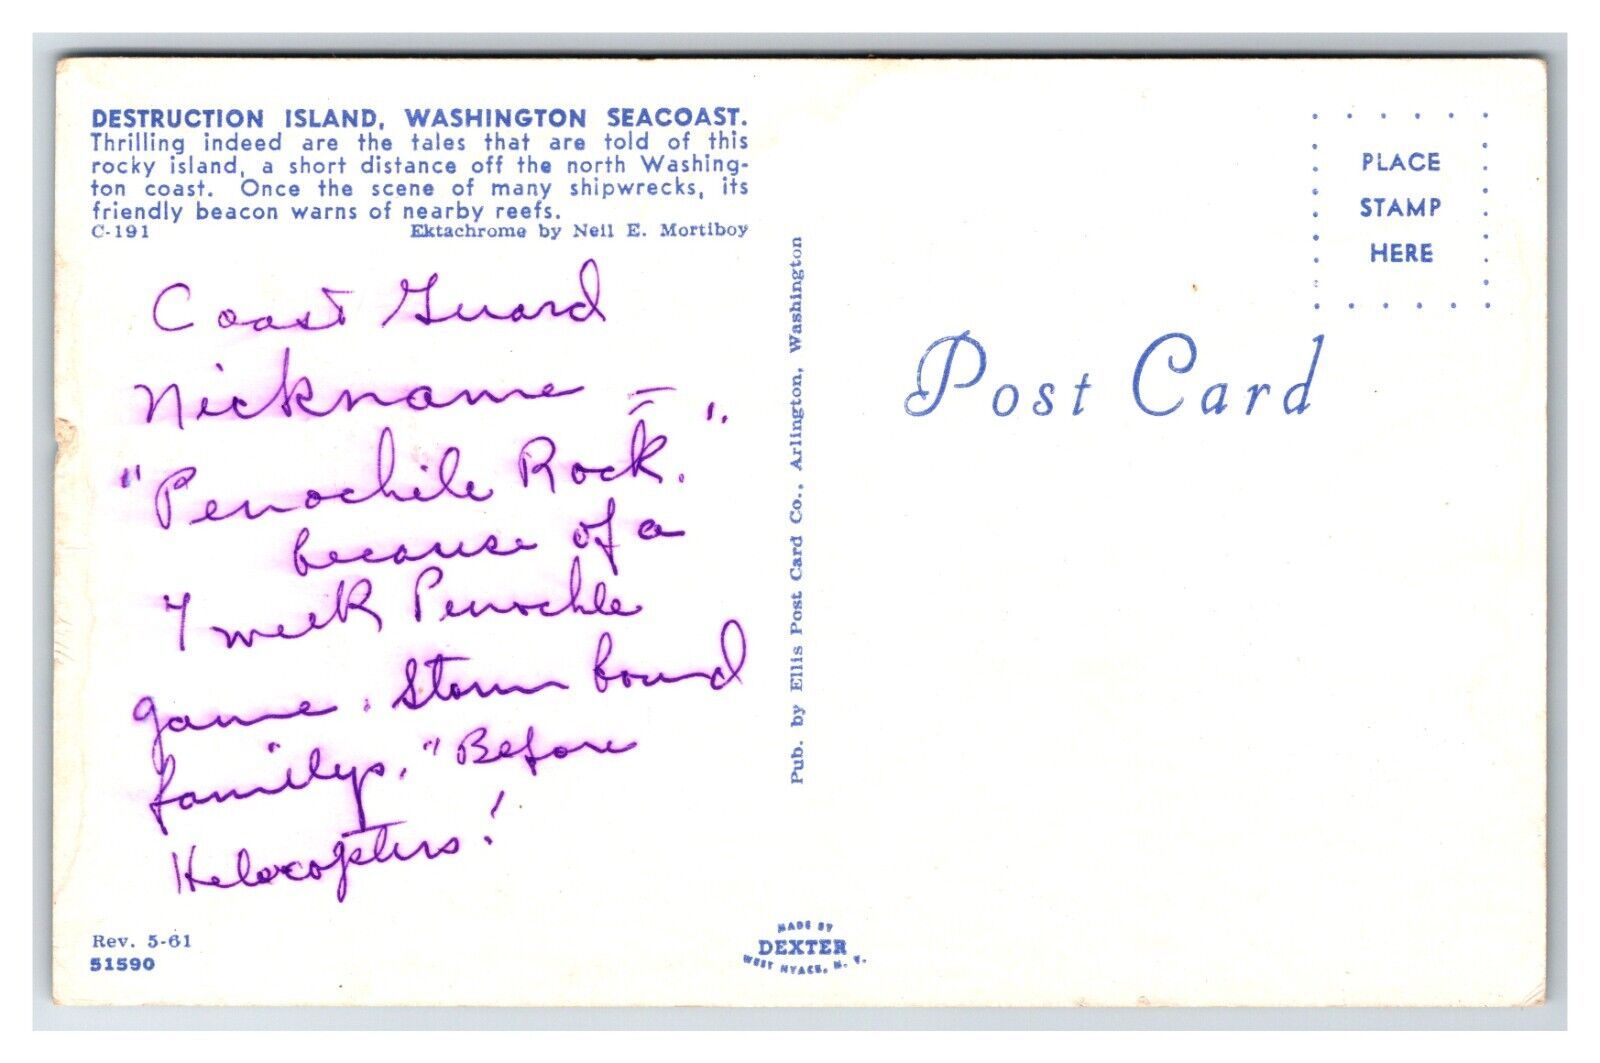 DESTRUCTION ISLAND, WASHINGTON SEACOAST.
Thrilling indeed are the tales that are told of this
rocky island, a short distance off the north Washing-
ton coast. Once the scene of many shipwrecks, its
friendly beacon warns of nearby reefs.
C-191 Ektachrome by Neil E. Mortiboy
Coast Guard
Nickname –
"Penochile Rock."
because of a
7 week Penochle
game. Storm bound
familys." Before
Helocopters!
Rev. 5-61
51590
Pub. by Ellis Post Card Co., Arlington, Washington
MADE BY
DEXTER
WEST NYACK, N. Y.
PLACE
STAMP
HERE
Post Card